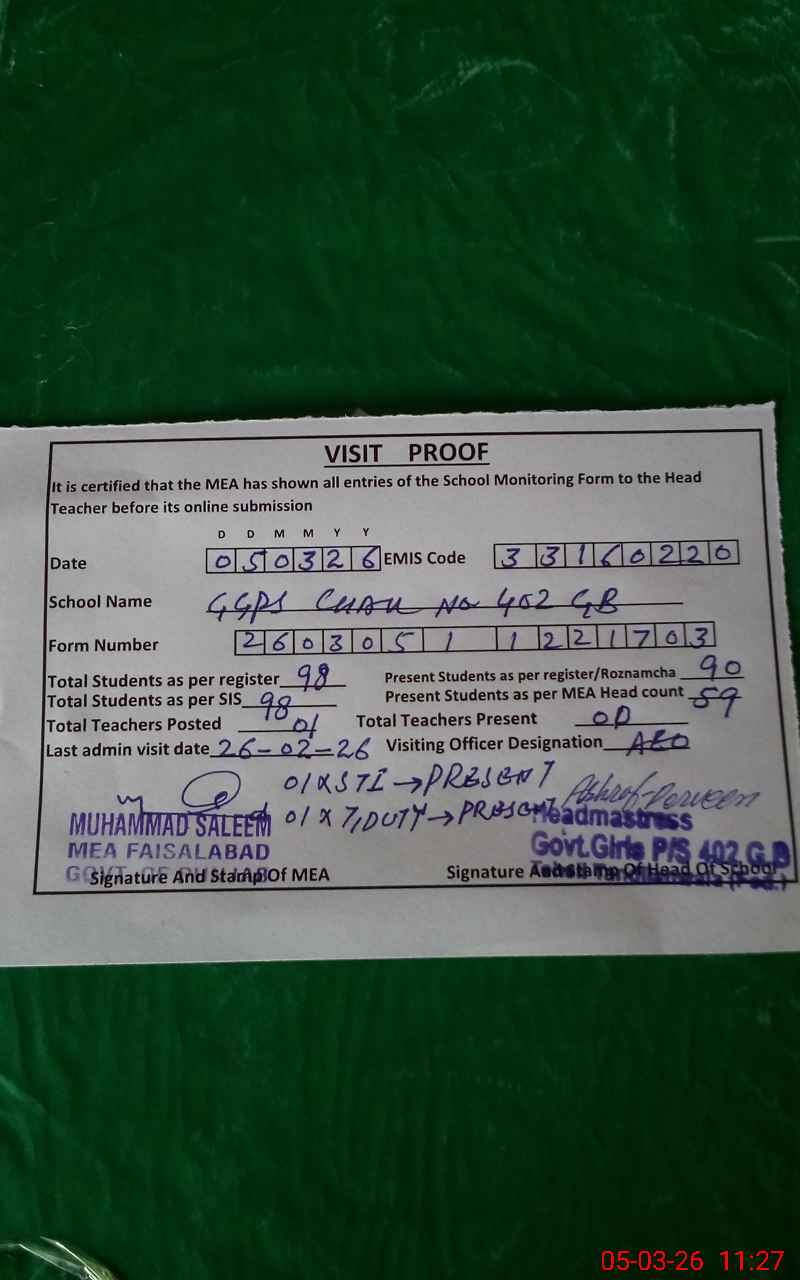 VISIT PROOF
It is certified that the MEA has shown all entries of the School Monitoring Form to the Head
Teacher before its online submission
D D M M Y Y
Date 050326 EMIS Code 33160220
School Name GGPS CHAK No 402 GB
Form Number 260305 1 1221703
Total Students as per register 98 Present Students as per register/Roznamcha 90
Total Students as per SIS 98 Present Students as per MEA Head count 59
Total Teachers Posted 01 Total Teachers Present 00
Last admin visit date 26-02-26 Visiting Officer Designation AEO
01 X STI → PRESENT
01 X T/DUTY → PRESENT Ashraf Perveen
MUHAMMAD SALEEM Headmastress
MEA FAISALABAD Govt.Girls P/S 402 G.B
Signature And Stamp Of MEA Signature And Stamp Of Head Of School
05-03-26 11:27